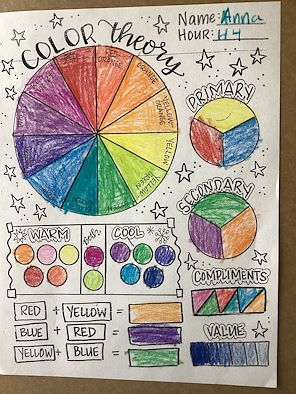 Name: Anna
HOUR: H4
COLOR Theory
RED
RED ORANGE
ORANGE
YELLOW ORANGE
YELLOW
YELLOW GREEN
GREEN
PRIMARY
SECONDARY
WARM
Both
COOL
COMPLIMENTS
RED + YELLOW =
BLUE + RED =
YELLOW + BLUE =
VALUE